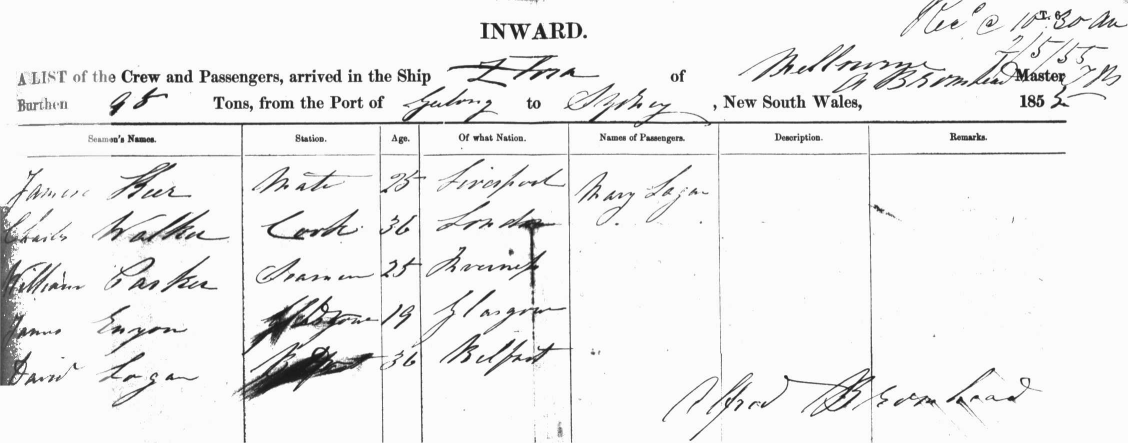 Recd @ 10.30 am
INWARD.
2/5/55
A LIST of the Crew and Passengers, arrived in the Ship Flora of Melbourne A Bromhead Master
Burthen 95 Tons, from the Port of Gelong to Sydney, New South Wales, 1855
Seamen's Names. Station. Age. Of what Nation. Names of Passengers. Description. Remarks.
James Mate 25 Liverpool Mary Logan
Charls Walker Cook 36 London
William Parker Seaman 25 Inverness
James Enyon 19 Glasgow
David Logan 36 Belfast
Alfred Bromhead